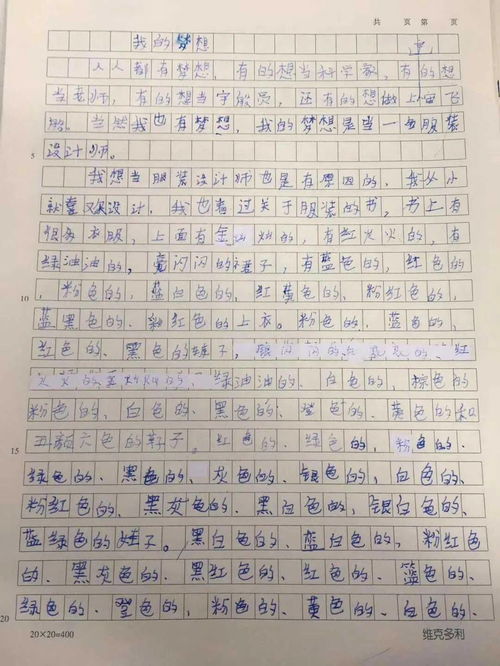 共 页 第 页
我的梦想
人人都有梦想，有的想当科学家，有的想
当老师，有的想当宇航员，还有的想做上宙飞
船。当然我也有梦想，我的梦想是当一名服装
5 设计师。
我想当服装设计师也是有原因的，我从小
就喜又设计，我也看过关于服装的书，书上有
很多衣服，上面有金灿灿的，有红火火的，有
绿油油的，亮闪闪的裙子，有蓝色的、红色的
10 、粉色的、蓝白色的、红黄色的、粉红色的、
蓝黑色的、粉红色的上衣。粉色的、蓝色的、
红色的、黑色的裤子，银闪闪的、的、红
火火的、金灿灿的、绿油油的、白色的、棕色的
粉色的、白色的、黑色的、登色的、黄色的和
15 五颜六色的鞋子。红色的、绿色的、粉色的、
绿色的、黑色的、灰色的、银色的、白色的、
粉红色的、黑灰色的、黑白色的、银白色的、
蓝绿色的娃子。黑白色的、蓝白色的、粉红色
的、黑灰色的、黑红色的、红色的、篮色的、
20 绿色的、登色的、粉色的、黄色的、白色的、
20×20=400 维克多利